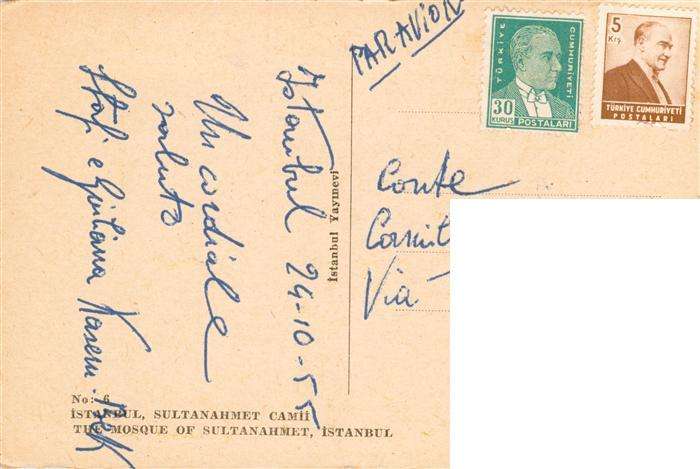 PAR AVION
TÜRKİYE CUMHURİYETİ
30
KURUŞ POSTALARI
5
Krş
TÜRKİYE CUMHURİYETİ
POSTALARI
Istanbul 24-10-55
Un cordiale
saluto
e Giuliana
İstanbul Yayınevi
Conte
Via
No: 6
İSTANBUL, SULTANAHMET CAMİİ
THE MOSQUE OF SULTANAHMET, İSTANBUL